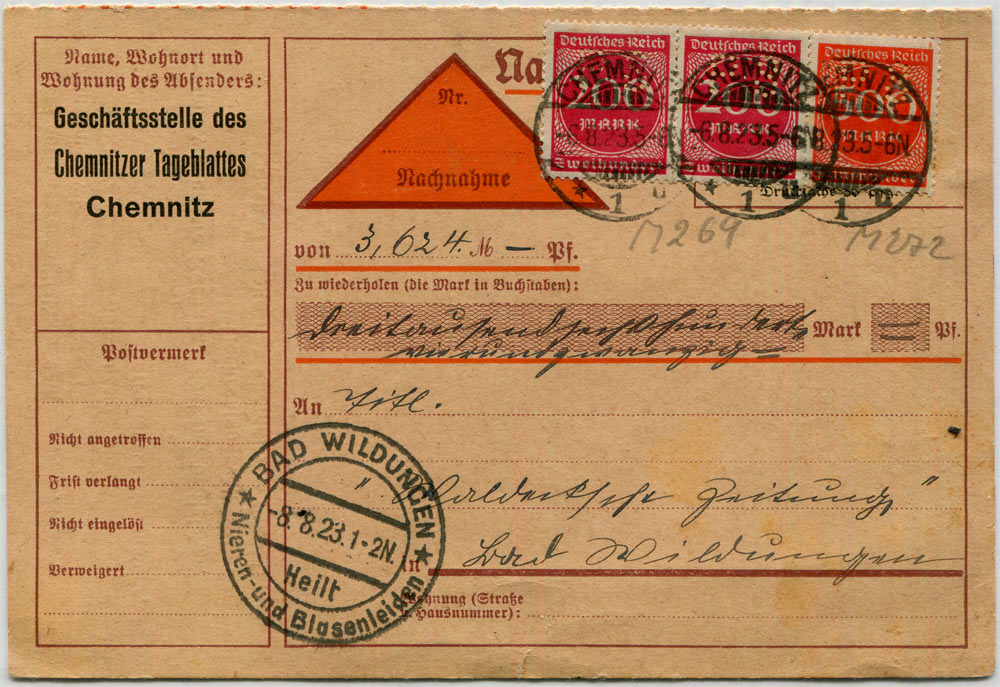 Name, Wohnort und
Wohnung des Absenders:
Geschäftsstelle des
Chemnitzer Tageblattes
Chemnitz
Postvermerk
Nicht angetroffen
Frist verlangt
Nicht eingelöst
Verweigert
Na
Nr.
Nachnahme
Deutsches Reich
200
MARK
Deutsches Reich
200
MARK
Deutsches Reich
CHEMNITZ
8.23.5-6
1 u
CHEMNITZ
-6.8.23.5-6N
1
8.23.5-6N
1 u
M269
M272
von 3,624. M — Pf.
Zu wiederholen (die Mark in Buchstaben):
Dreitausendsechshundert Mark = Pf.
vierundzwanzig
An Titl.
"Waldecksche Zeitung"
in Bad Wildungen
Wohnung (Straße
u. Hausnummer):
BAD WILDUNGEN
-8.8.23.1-2N.
Heilt
Nieren-und Blasenleiden